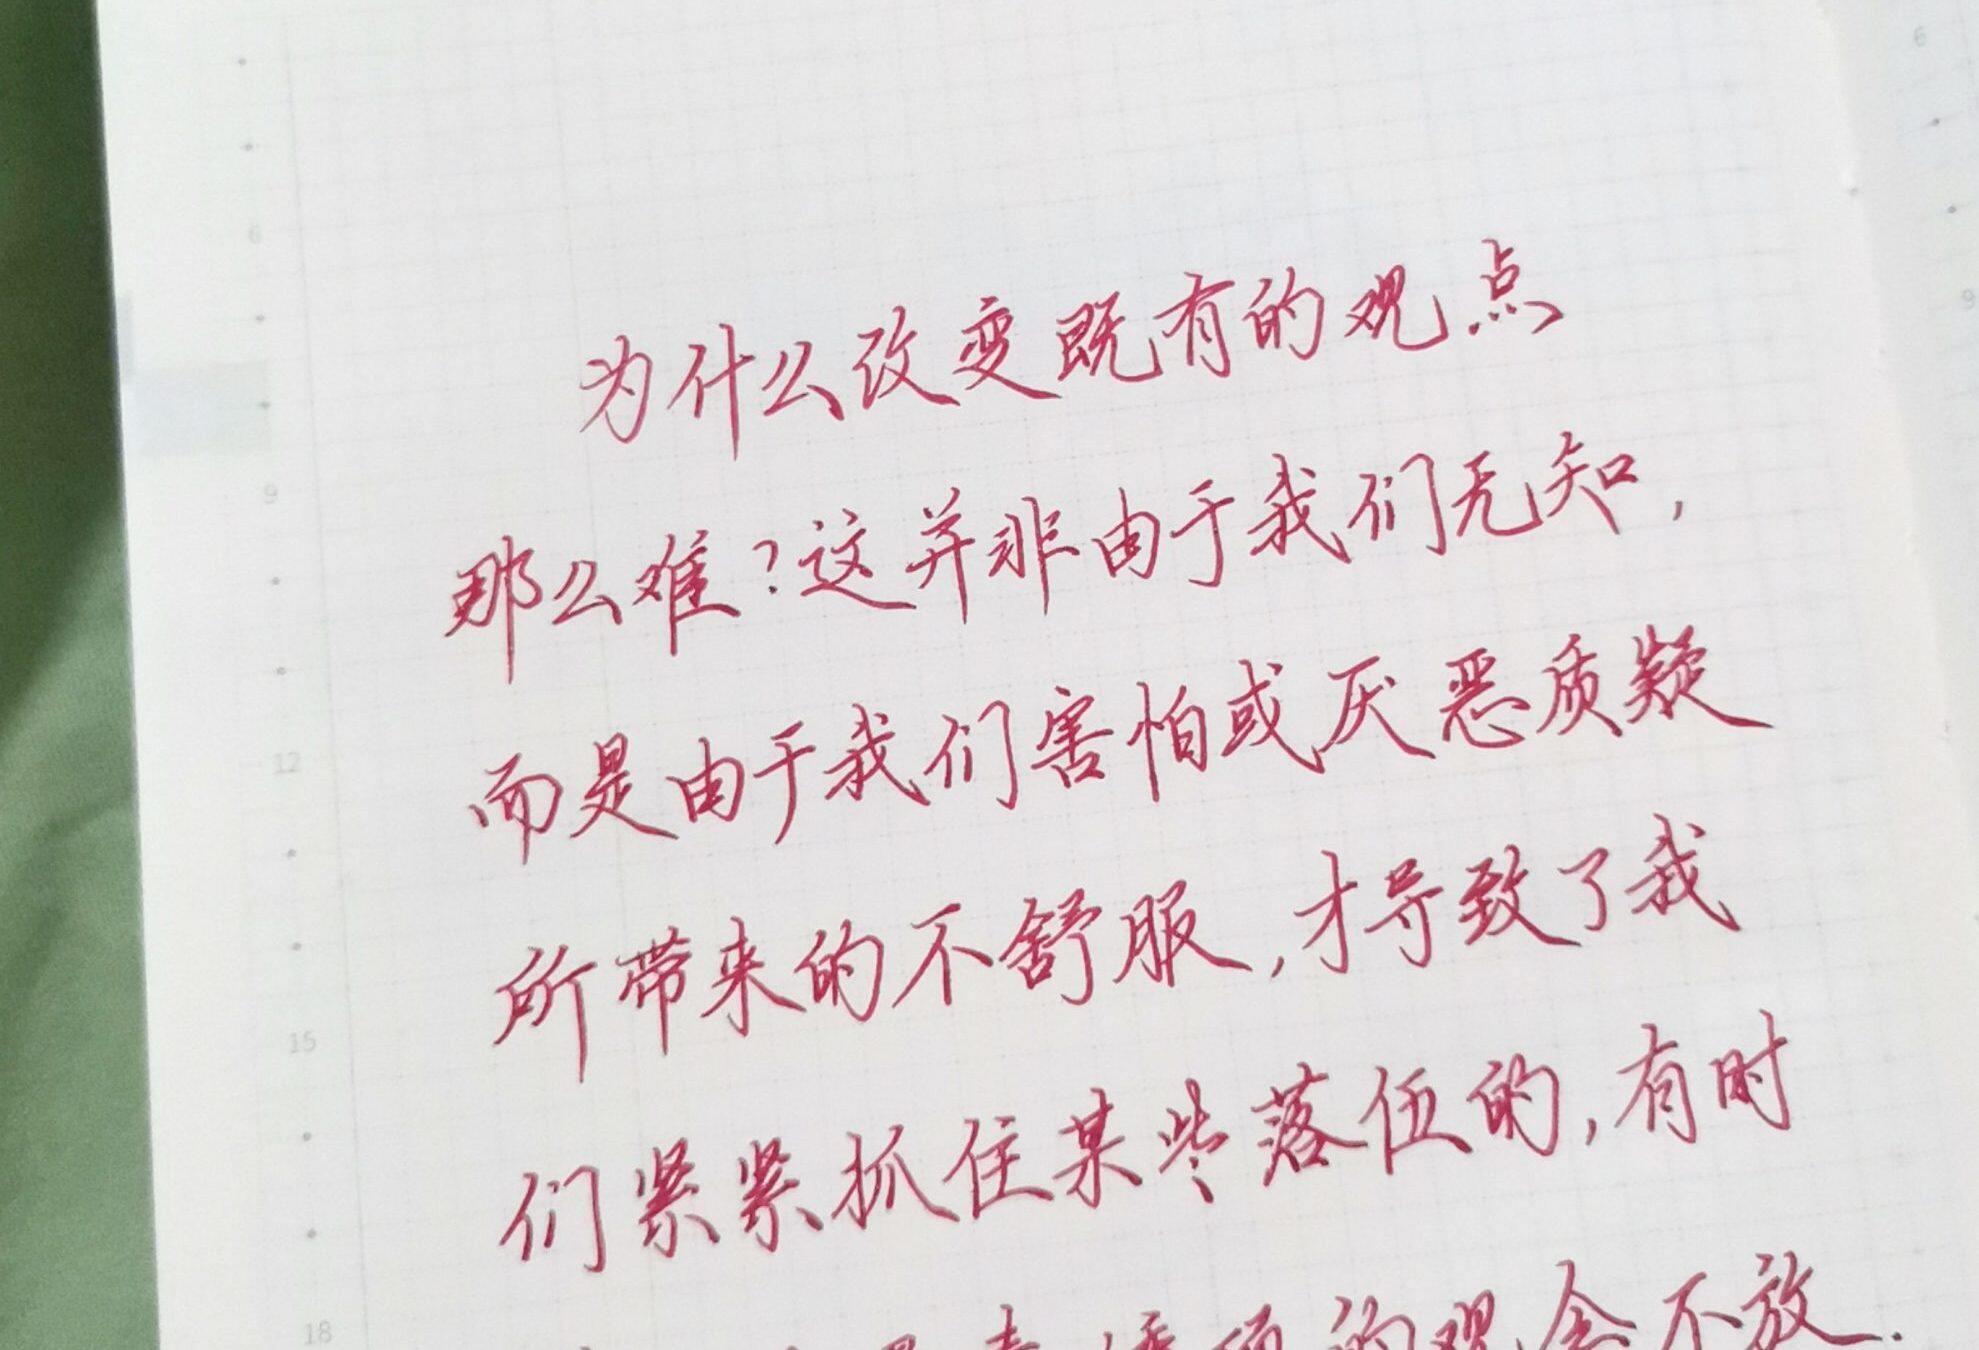 为什么改变既有的观点
那么难?这并非由于我们无知,
而是由于我们害怕或厌恶质疑
所带来的不舒服,才导致了我
们紧紧抓住某些落伍的,有时
的观念不放.
6
9
12
15
18
6
9